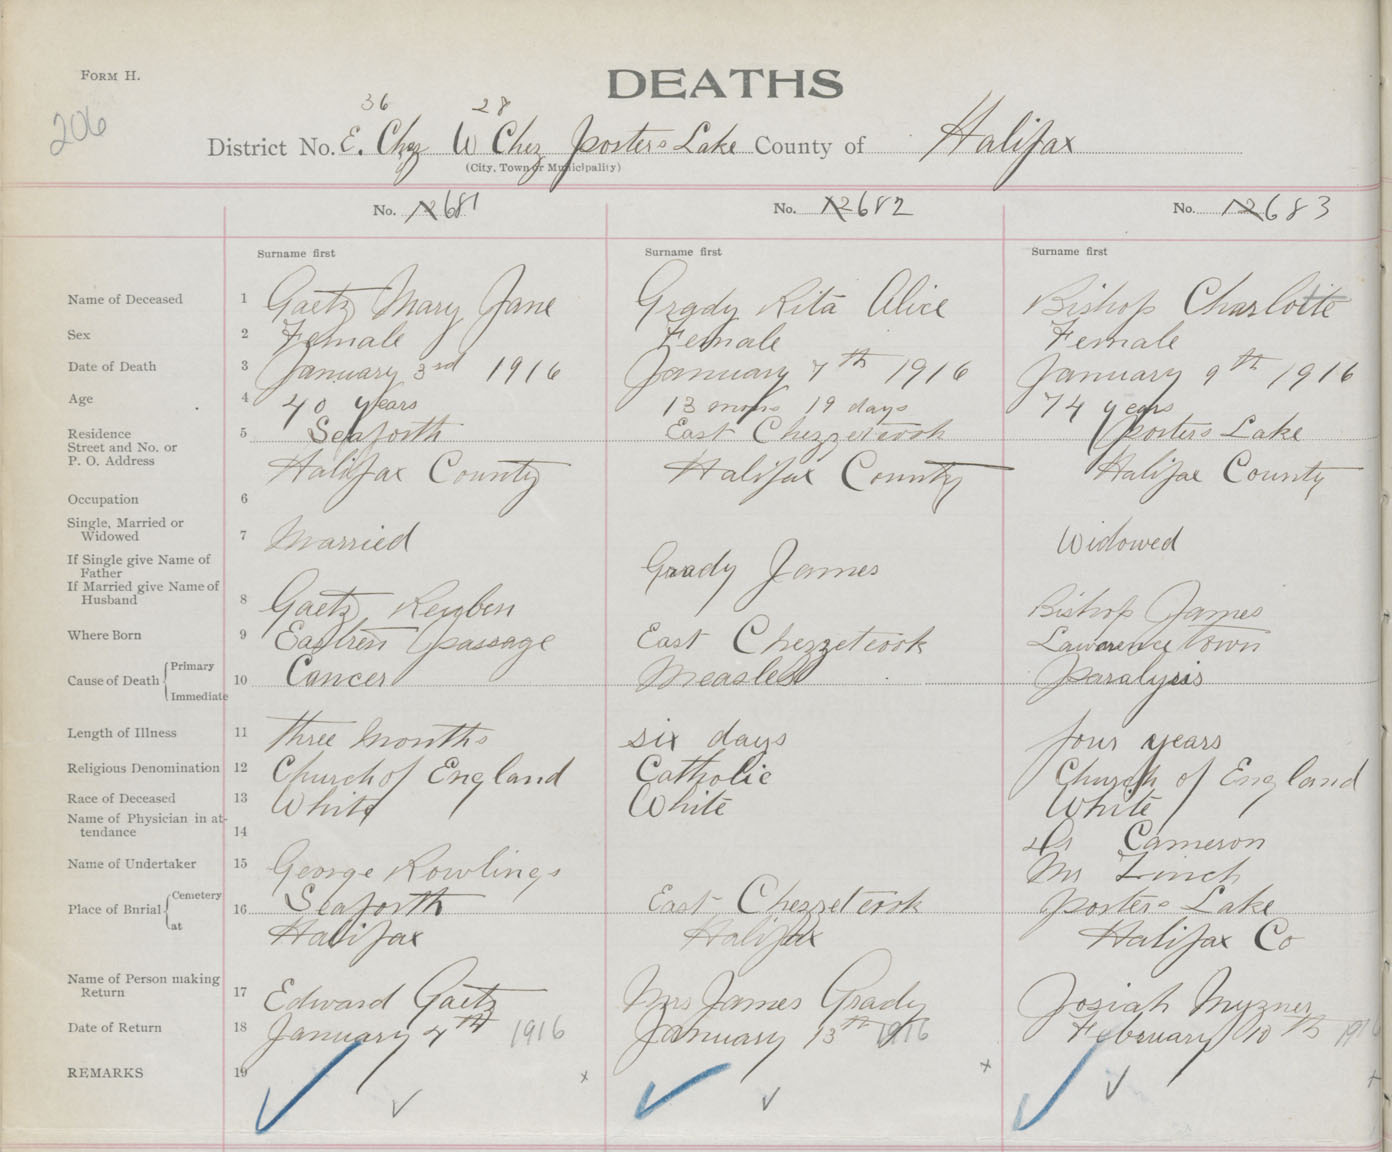 FORM H.
DEATHS
206
36 28
District No. E. Chez W Chez Porters Lake County of Halifax
(City, Town or Municipality)
No. 12681 No. 12682 No. 12683
Surname first Surname first Surname first
Name of Deceased 1 Gaetz Mary Jane Grady Rita Alice Bishop Charlotte
Sex 2 Female Female Female
Date of Death 3 January 3rd 1916 January 7th 1916 January 9th 1916
Age 4 40 years 13 mons 19 days 74 years
Residence 5 Seaforth East Chezzetcook Porters Lake
Street and No. or
P. O. Address Halifax County Halifax County Halifax County
Occupation 6
Single, Married or
Widowed 7 Married Widowed
If Single give Name of
Father Grady James
If Married give Name of
Husband 8 Gaetz Reuben Bishop James
Where Born 9 Eastren Passage East Chezzetcook Lawrencetown
Cause of Death { Primary 10 Cancer Measles Paralysis
Immediate
Length of Illness 11 three months six days four years
Religious Denomination 12 Church of England Catholic Church of England
Race of Deceased 13 White White White
Name of Physician in at-
tendance 14 Dr Cameron
Name of Undertaker 15 George Rowlings Mr Finch
Place of Burial { Cemetery 16 Seaforth East Chezzetcook Porters Lake
at Halifax Halifax Halifax Co
Name of Person making
Return 17 Edward Gaetz Mrs James Grady Josiah Myzner
Date of Return 18 January 4th 1916 January 13th 1916 February 10th 1916
REMARKS 19